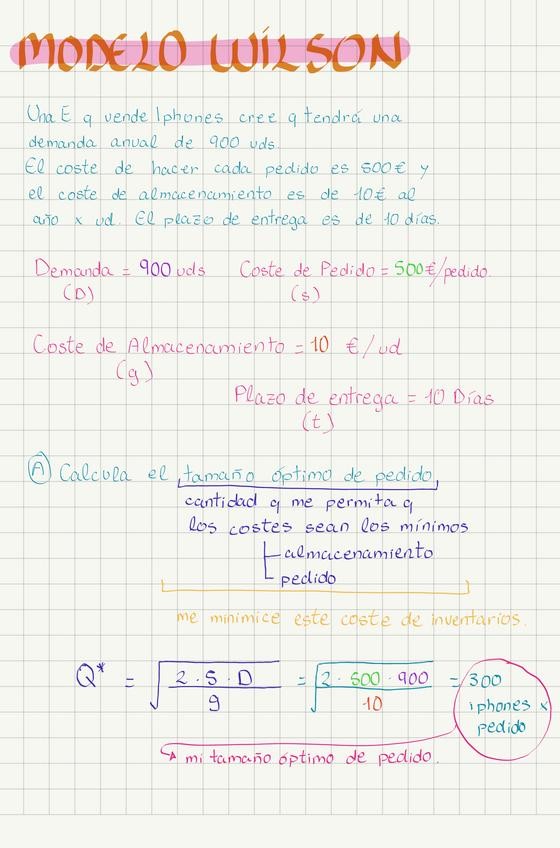 MODELO WILSON
Una E q vende Iphones cree q tendrá una
demanda anual de 900 uds.
El coste de hacer cada pedido es 500€ y
el coste de almacenamiento es de 10€ al
año x ud. El plazo de entrega es de 10 días.
Demanda = 900 uds Coste de Pedido = 500€/pedido.
(D) (s)
Coste de Almacenamiento = 10 €/ud
(g)
Plazo de entrega = 10 Días
(t)
A Calcula el tamaño óptimo de pedido,
cantidad q me permita q
los costes sean los mínimos
almacenamiento
pedido
me minimice este coste de inventarios.
Q* = √(2 · S · D / g) = √(2 · 500 · 900 / 10) = 300
iphones x
pedido
mi tamaño óptimo de pedido.